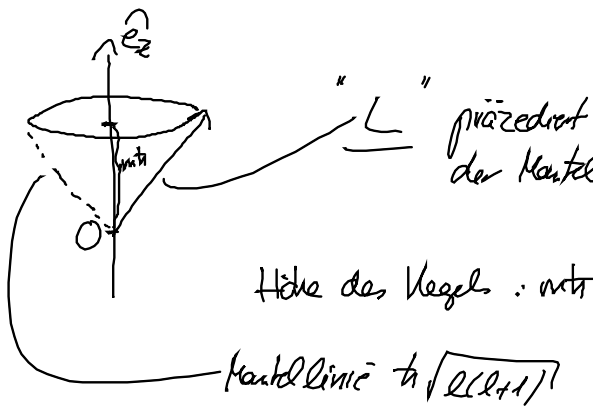 ê_z
"L" präzediert
der Mantel
mħ
O
Höhe des Kegels : mħ
Mantellinie ħ√l(l+1)